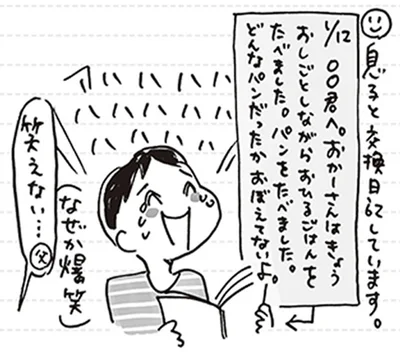 息子と交換日記しています。
1/12
〇〇君へ。おかーさんはきょう
おしごとしながらおひるごはんを
たべました。パンをたべました。
どんなパンだったかおぼえてないよ。
ハハハハハ
ハハハハハ
ハハハハハ
(なぜか爆笑)
笑えない…
父